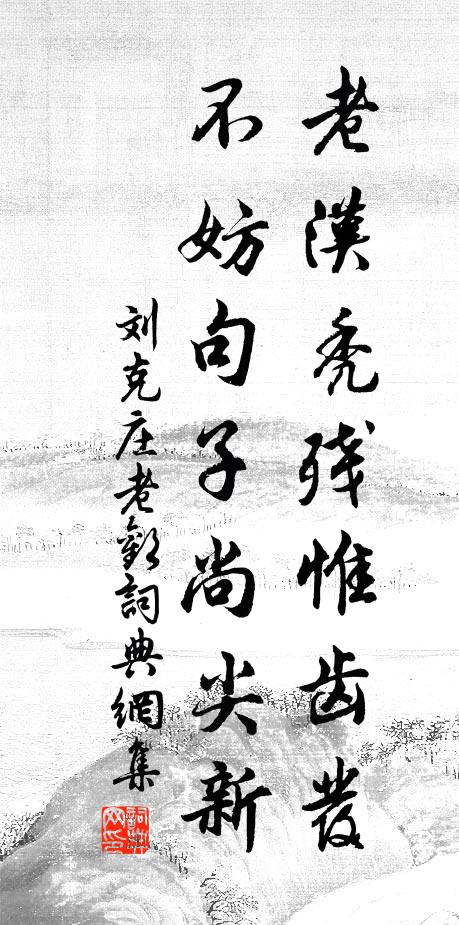 老漢秃残惟齿發
不妨句子尚尖新
刘克庄老歡詞典網集
詞典网印